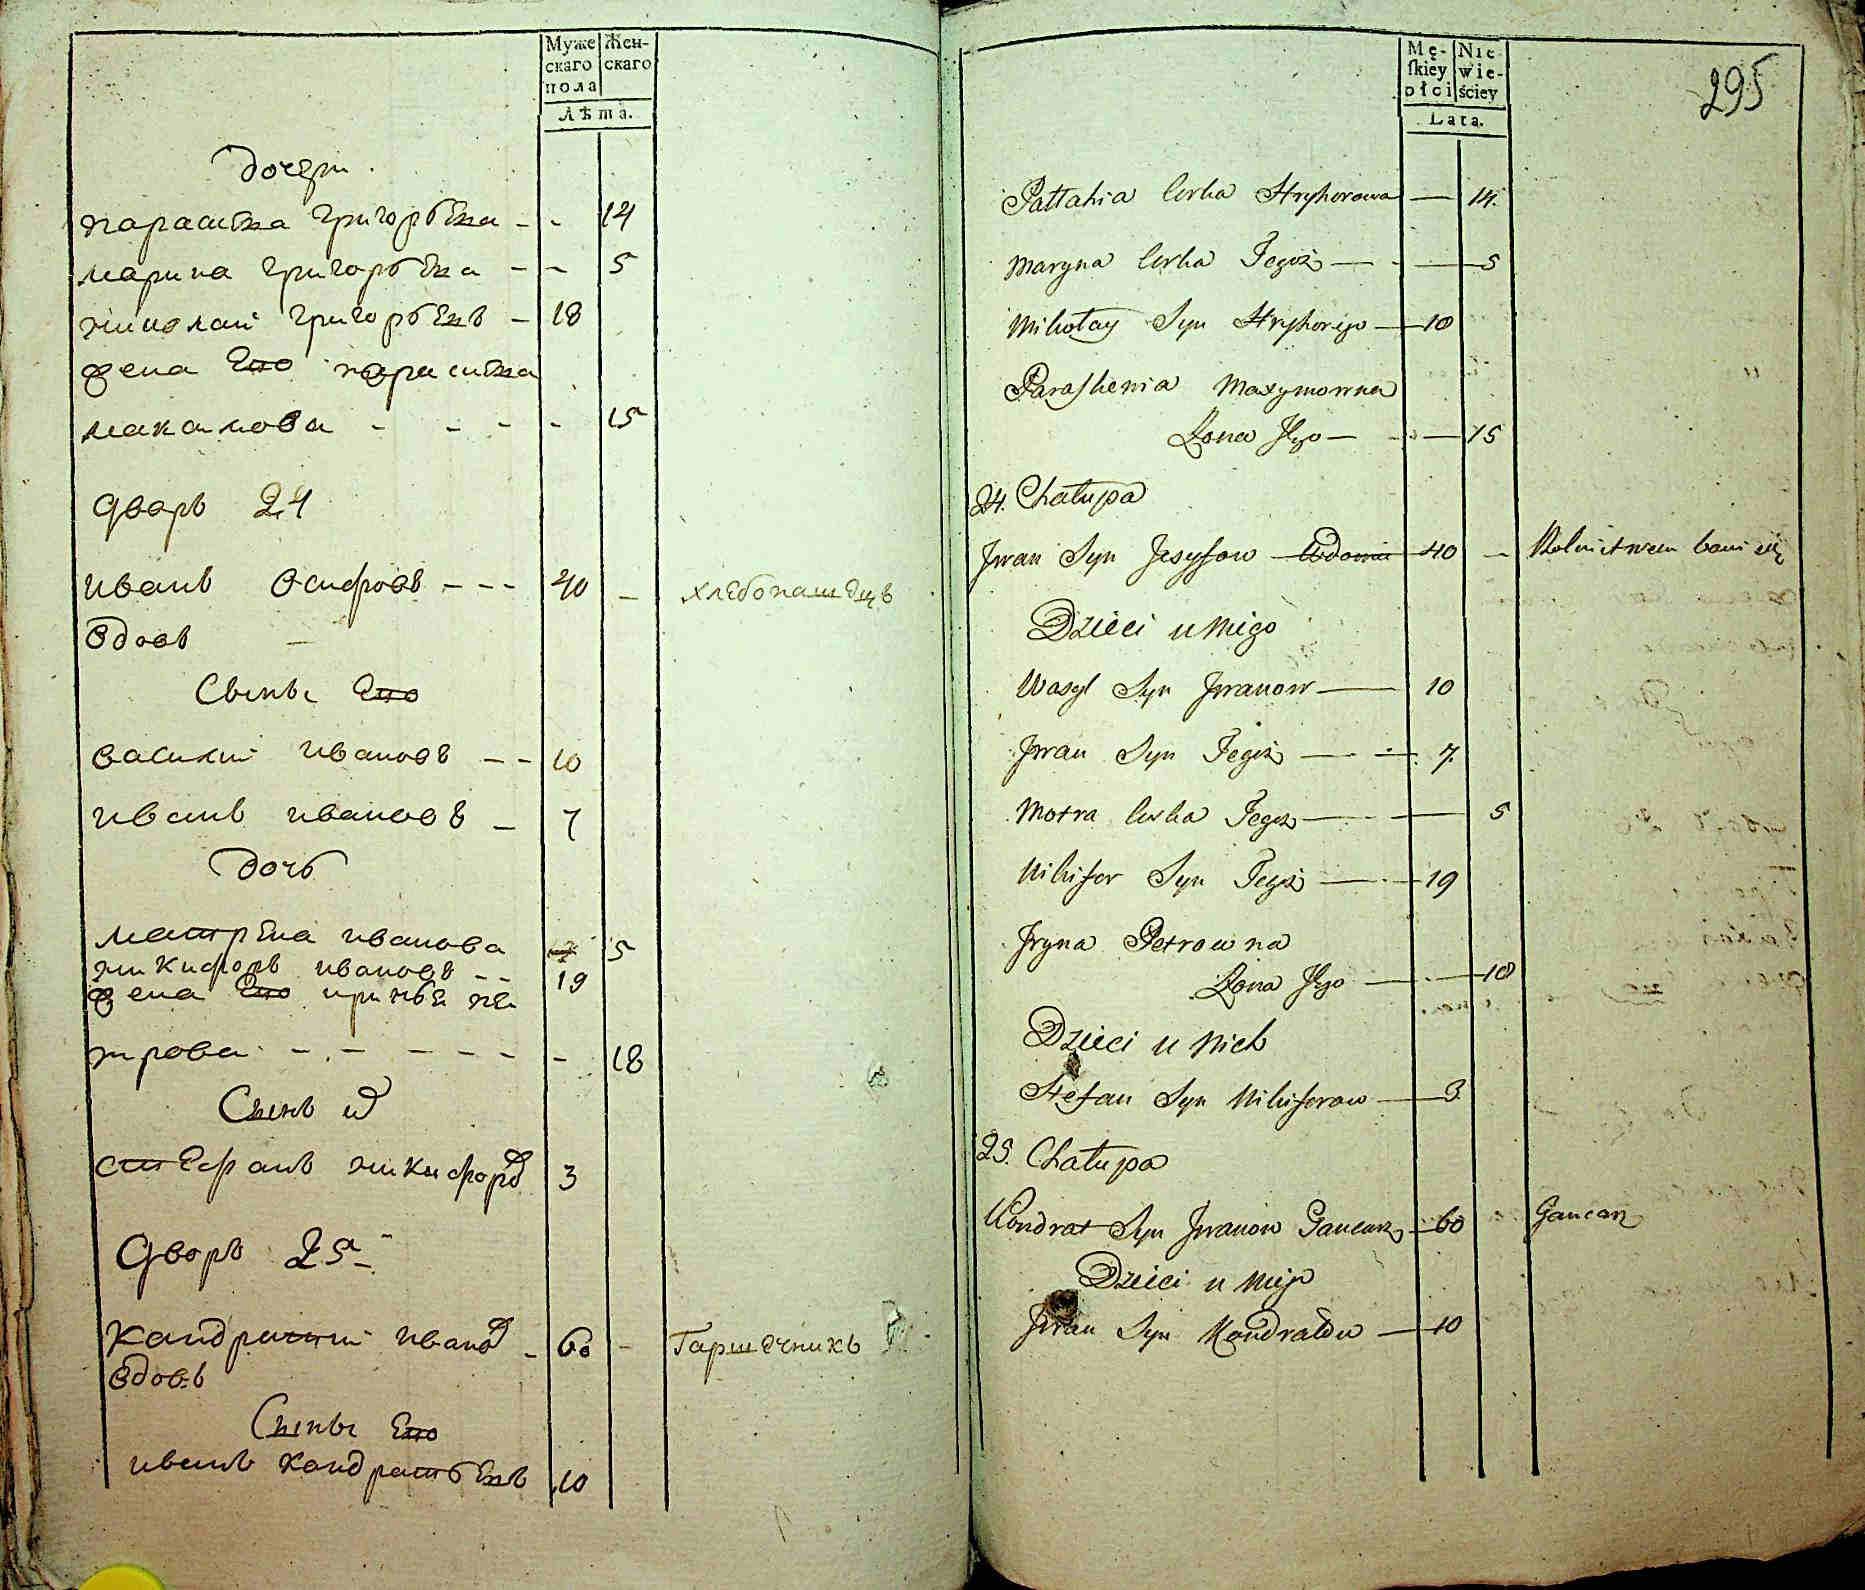 Муже
скаго
пола
Жен-
скаго
Лѣта.
дочери
парасковья григорьева - - 14
марина григорьева - - 5
николай григорьевъ - 18
жена Его
- - - - 15
дворъ 24
иванъ осифовъ - - - 40 - хлебопашецъ
вдовъ
Сыны Его
василий ивановъ - - 10
иванъ ивановъ - 7
дочь
матрена иванова 5
никифоръ ивановъ - - 19
жена Его ирина пе
трова - - - - - - 18
Сынъ их
стефанъ никифоров 3
дворъ 25
кондратий иванов - 60 - Гаршечникъ
вдовъ
Сыны Его
иванъ кондратьевъ 10
Mę-
ſkiey
płci
Nie-
wie-
ściey
Lata.
295
Pałłahia Corka Hryhorowa — 14.
Maryna Corka Tegoż — 5
Mikołay Syn Hryhorego — 18
Paraskewia Maxymowna
Żona Jego — 15
24. Chałupa
Jwan Syn Jozyfow Wdowiec 40 - Rolnictwem bawi się
Dzieci u Niego
Wasyl Syn Jwanow — 10
Jwan Syn Tegoż — 7.
Motra Corka Tegoż — 5
Nikifor Syn Tegoż — 19
Jryna Petrowna
Żona Jego — 18
Dzieci u Nich
Stefan Syn Nikiforow — 3
25. Chałupa
Kondrat Syn Jwanow Gancarz — 60 Gancarz
Dzieci u Niego
Jwan Syn Kondratow — 10